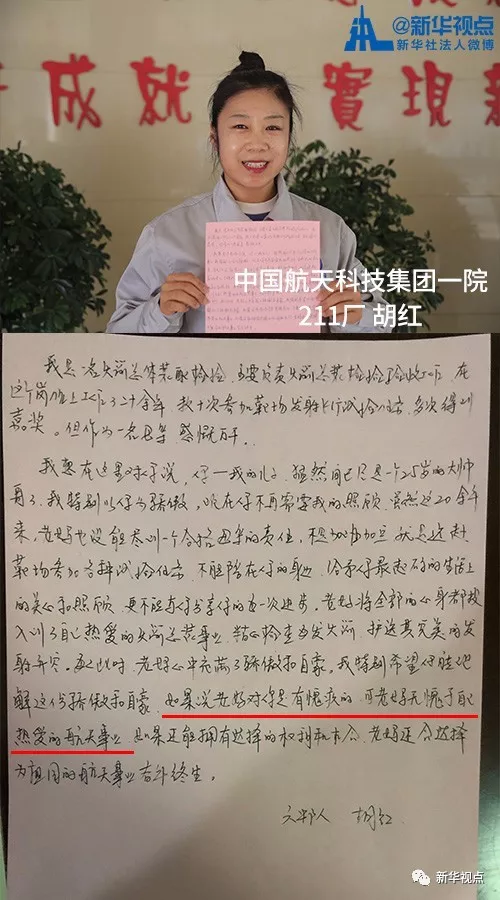 @新华视点
新华社法人微博
成就 實現
中国航天科技集团一院
211厂 胡红
我是一名火箭总体装配检验,主要负责火箭总装检验验收工作,在
这个岗位上工作了二十余年,数十次参加靶场发射飞行试验任务,多次得到
嘉奖。但作为一名母亲感慨万千。
我想在这里对你说,仔—我的儿子,猛然间已是一个25岁的大帅
哥了,我特别以你为骄傲,现在你不再需要我的照顾,虽然这20余年
来,老妈也没能尽到一个合格母亲的责任,不是加班加点就是远赴
靶场参加各种试验任务,不能陪在你的身边,给予你最起码的生活上
的关心和照顾,更不能与你分享你的每一次进步。老妈将全部的心身都投
入到了自己热爱的火箭总装事业,精心检查每发火箭,护送其完美的发
射升空。每到此时,老妈心中充满了骄傲和自豪。我特别希望你能理
解这份骄傲和自豪,如果说老妈对你是有愧疚的,可老妈无愧于自己
热爱的航天事业,如果还能拥有选择的权利和机会,老妈还会选择
为祖国的航天事业奋斗终生。
六部人 胡红
新华视点